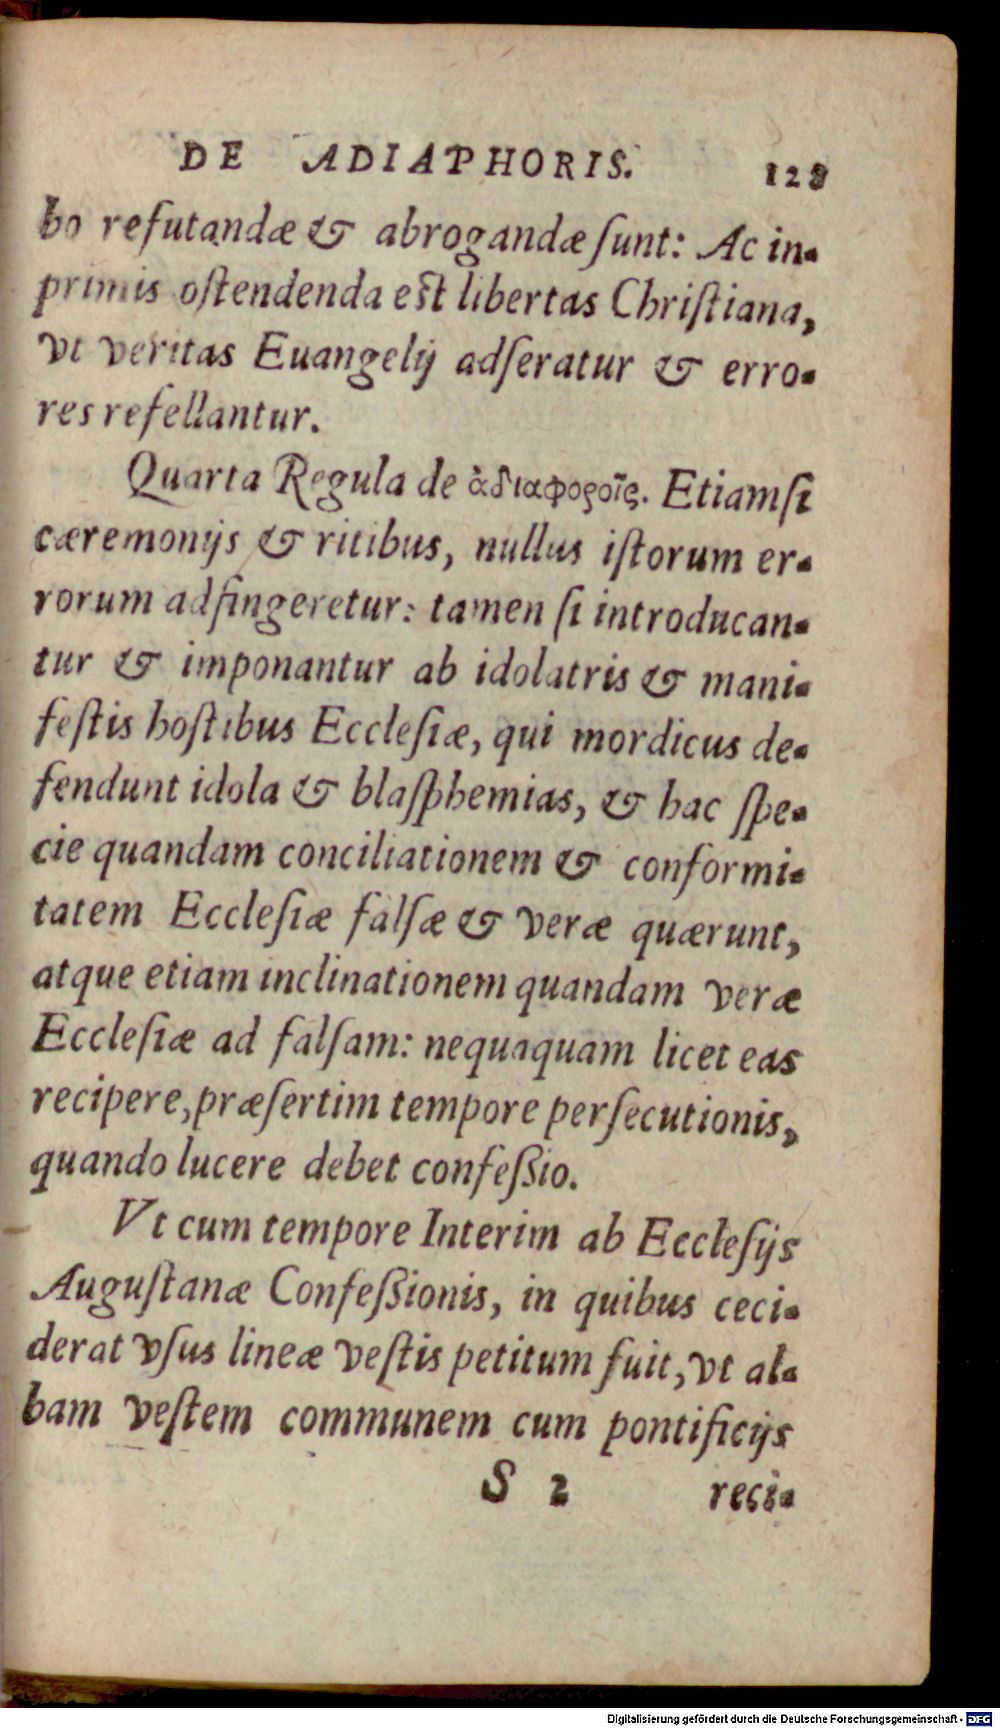 DE ADIAPHORIS. 128
bo refutandæ & abrogandæ ſunt: Ac in-
primis oſtendenda eſt libertas Chriſtiana,
vt veritas Euangelij adſeratur & erro-
res refellantur.
Quarta Regula de ἀδιαφοροῖς. Etiamſi
cæremonijs & ritibus, nullus iſtorum er-
rorum adfingeretur: tamen ſi introducan-
tur & imponantur ab idolatris & mani-
feſtis hoſtibus Eccleſiæ, qui mordicus de-
fendunt idola & blaſphemias, & hac ſpe-
cie quandam conciliationem & conformi-
tatem Eccleſiæ falſæ & veræ quærunt,
atque etiam inclinationem quandam veræ
Eccleſiæ ad falſam: nequaquam licet eas
recipere, præſertim tempore perſecutionis,
quando lucere debet confeßio.
Vt cum tempore Interim ab Eccleſijs
Auguſtanæ Confeßionis, in quibus ceci-
derat vſus lineæ veſtis petitum fuit, vt al-
bam veſtem communem cum pontificijs
S 2 reci-
Digitalisierung gefördert durch die Deutsche Forschungsgemeinschaft - DFG